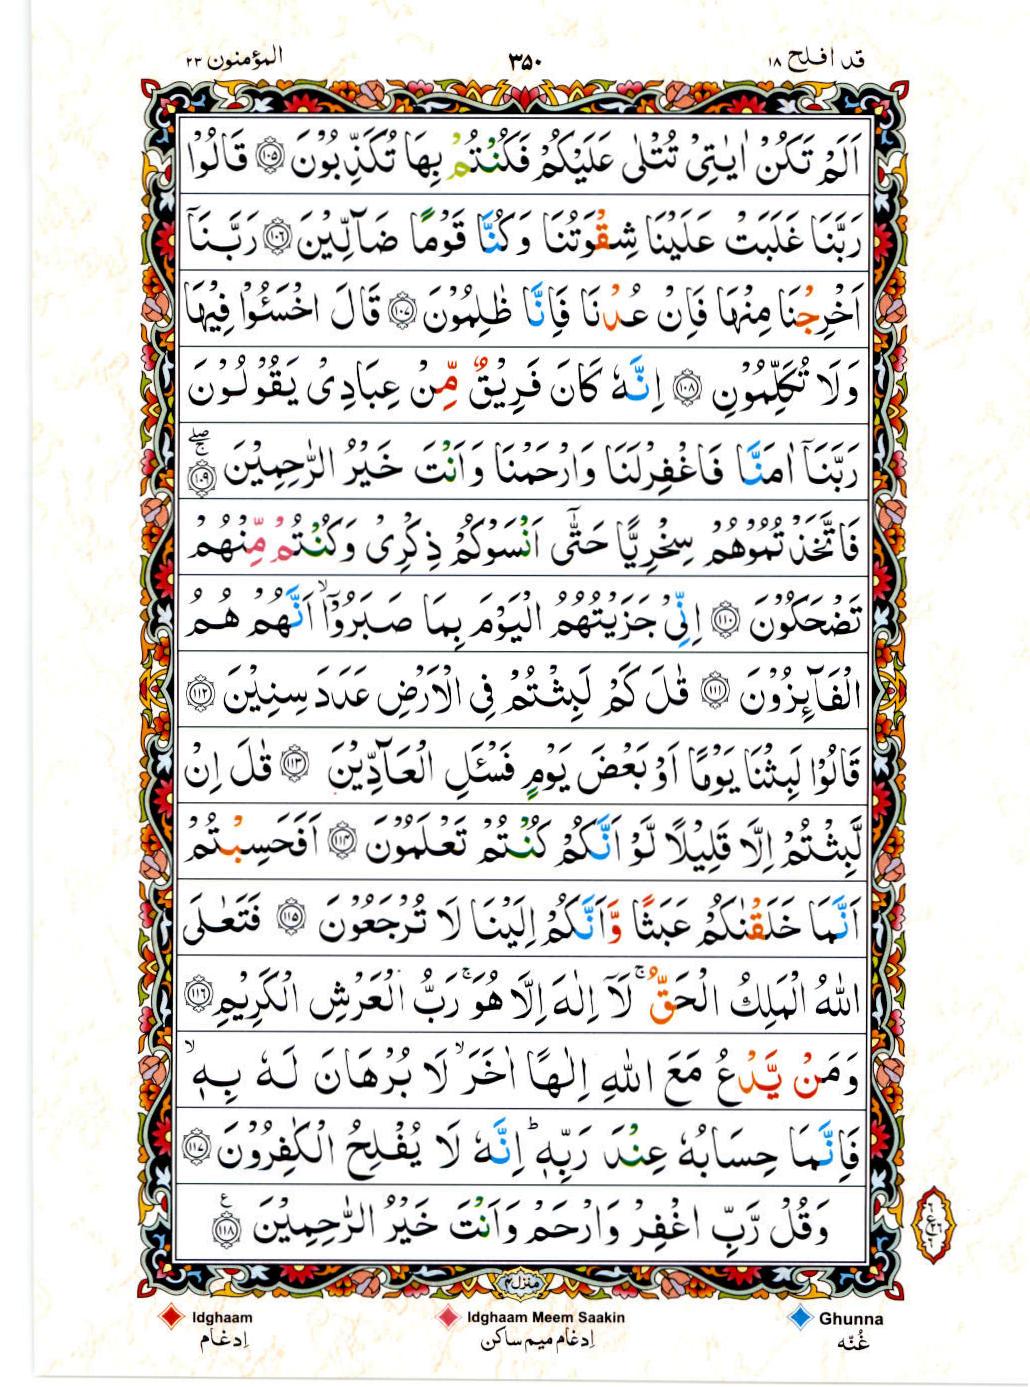 المؤمنون ۲۳
۳۵۰
قد افلح ۱۸
اَلَمْ تَكُنْ اٰيٰتِىْ تُتْلٰى عَلَيْكُمْ فَكُنْتُمْ بِهَا تُكَذِّبُوْنَ ۝١٠٥ قَالُوْا
رَبَّنَا غَلَبَتْ عَلَيْنَا شِقْوَتُنَا وَكُنَّا قَوْمًا ضَآلِّيْنَ ۝١٠٦ رَبَّنَآ
اَخْرِجْنَا مِنْهَا فَاِنْ عُدْنَا فَاِنَّا ظٰلِمُوْنَ ۝١٠٧ قَالَ اخْسَئُوْا فِيْهَا
وَلَا تُكَلِّمُوْنِ ۝١٠٨ اِنَّهٗ كَانَ فَرِيْقٌ مِّنْ عِبَادِىْ يَقُوْلُوْنَ
رَبَّنَآ اٰمَنَّا فَاغْفِرْلَنَا وَارْحَمْنَا وَاَنْتَ خَيْرُ الرّٰحِمِيْنَ ۝١٠٩ ۚۖ
فَاتَّخَذْتُمُوْهُمْ سِخْرِيًّا حَتّٰٓى اَنْسَوْكُمْ ذِكْرِىْ وَكُنْتُمْ مِّنْهُمْ
تَضْحَكُوْنَ ۝١١٠ اِنِّىْ جَزَيْتُهُمُ الْيَوْمَ بِمَا صَبَرُوْٓا ۙ اَنَّهُمْ هُمُ
الْفَآئِزُوْنَ ۝١١١ قٰلَ كَمْ لَبِثْتُمْ فِى الْاَرْضِ عَدَدَ سِنِيْنَ ۝١١٢
قَالُوْا لَبِثْنَا يَوْمًا اَوْ بَعْضَ يَوْمٍ فَسْئَلِ الْعَآدِّيْنَ ۝١١٣ قٰلَ اِنْ
لَّبِثْتُمْ اِلَّا قَلِيْلًا لَّوْ اَنَّكُمْ كُنْتُمْ تَعْلَمُوْنَ ۝١١٤ اَفَحَسِبْتُمْ
اَنَّمَا خَلَقْنٰكُمْ عَبَثًا وَّاَنَّكُمْ اِلَيْنَا لَا تُرْجَعُوْنَ ۝١١٥ فَتَعٰلَى
اللّٰهُ الْمَلِكُ الْحَقُّ ۚ لَآ اِلٰهَ اِلَّا هُوَ ۚ رَبُّ الْعَرْشِ الْكَرِيْمِ ۝١١٦
وَمَنْ يَّدْعُ مَعَ اللّٰهِ اِلٰهًا اٰخَرَ ۙ لَا بُرْهَانَ لَهٗ بِهٖ ۙ
فَاِنَّمَا حِسَابُهٗ عِنْدَ رَبِّهٖ ؕ اِنَّهٗ لَا يُفْلِحُ الْكٰفِرُوْنَ ۝١١٧
وَقُلْ رَّبِّ اغْفِرْ وَارْحَمْ وَاَنْتَ خَيْرُ الرّٰحِمِيْنَ ۝١١٨ ع
منزل ۴
Idghaam
اِدغام
Idghaam Meem Saakin
اِدغام میم ساکن
Ghunna
غُنّه